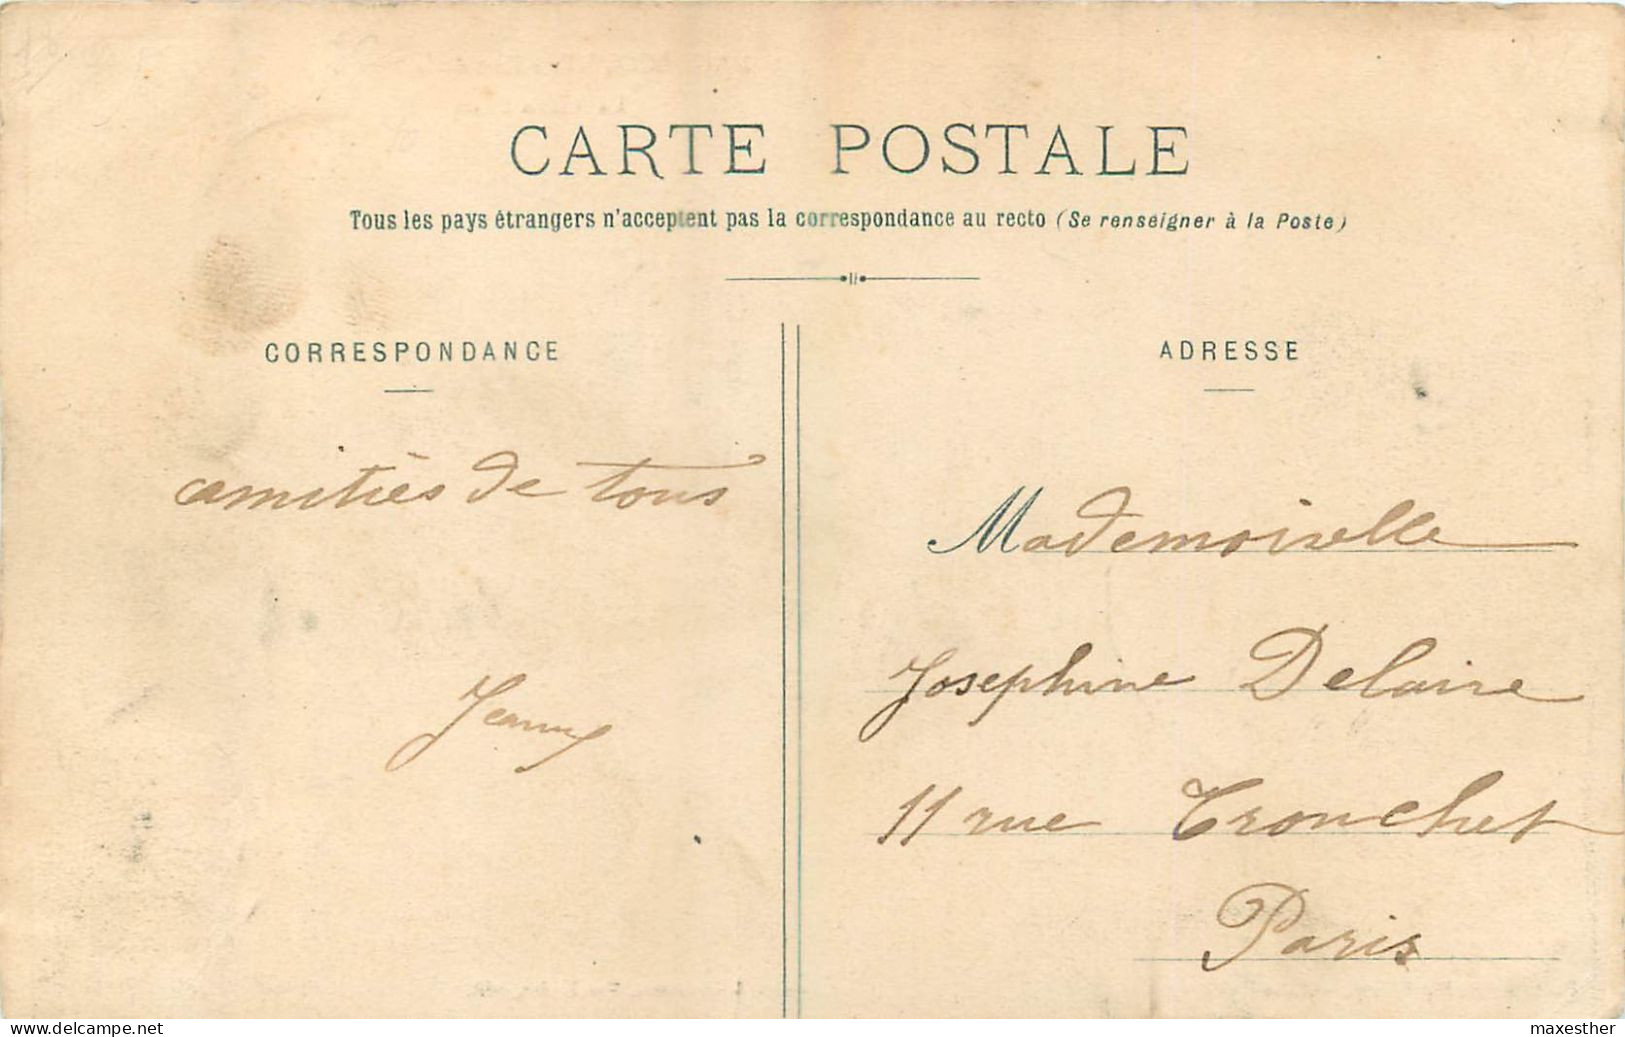 CARTE POSTALE
Tous les pays étrangers n'acceptent pas la correspondance au recto (Se renseigner à la Poste)
CORRESPONDANCE
amitiès de tous
Jeanny
ADRESSE
Mademoiselle
Josephine Delaire
11 rue Tronchet
Paris
www.delcampe.net
maxesther